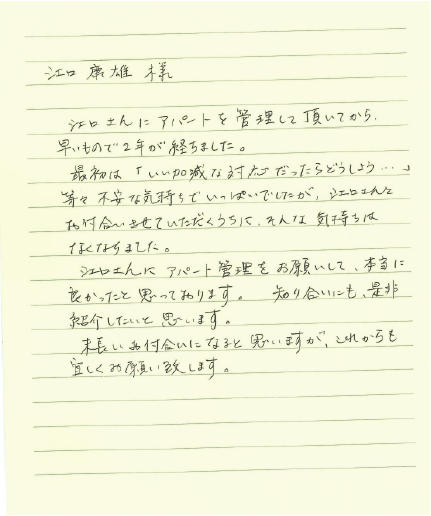 江口 康雄 様
江口さんに アパートを 管理して頂いてから、
早いもので2年が経ちました。
最初は「いい加減な対応だったらどうしよう…」
等々 不安な気持ちでいっぱいでしたが、江口さんと
お付合いさせていただくうちに、そんな 気持ちは
なくなりました。
江口さんに アパート管理をお願いして、本当に
良かったと思っております。 知り合いにも、是非
紹介したいと思います。
末長いお付合いになると思いますが、これからも
宜しくお願い致します。